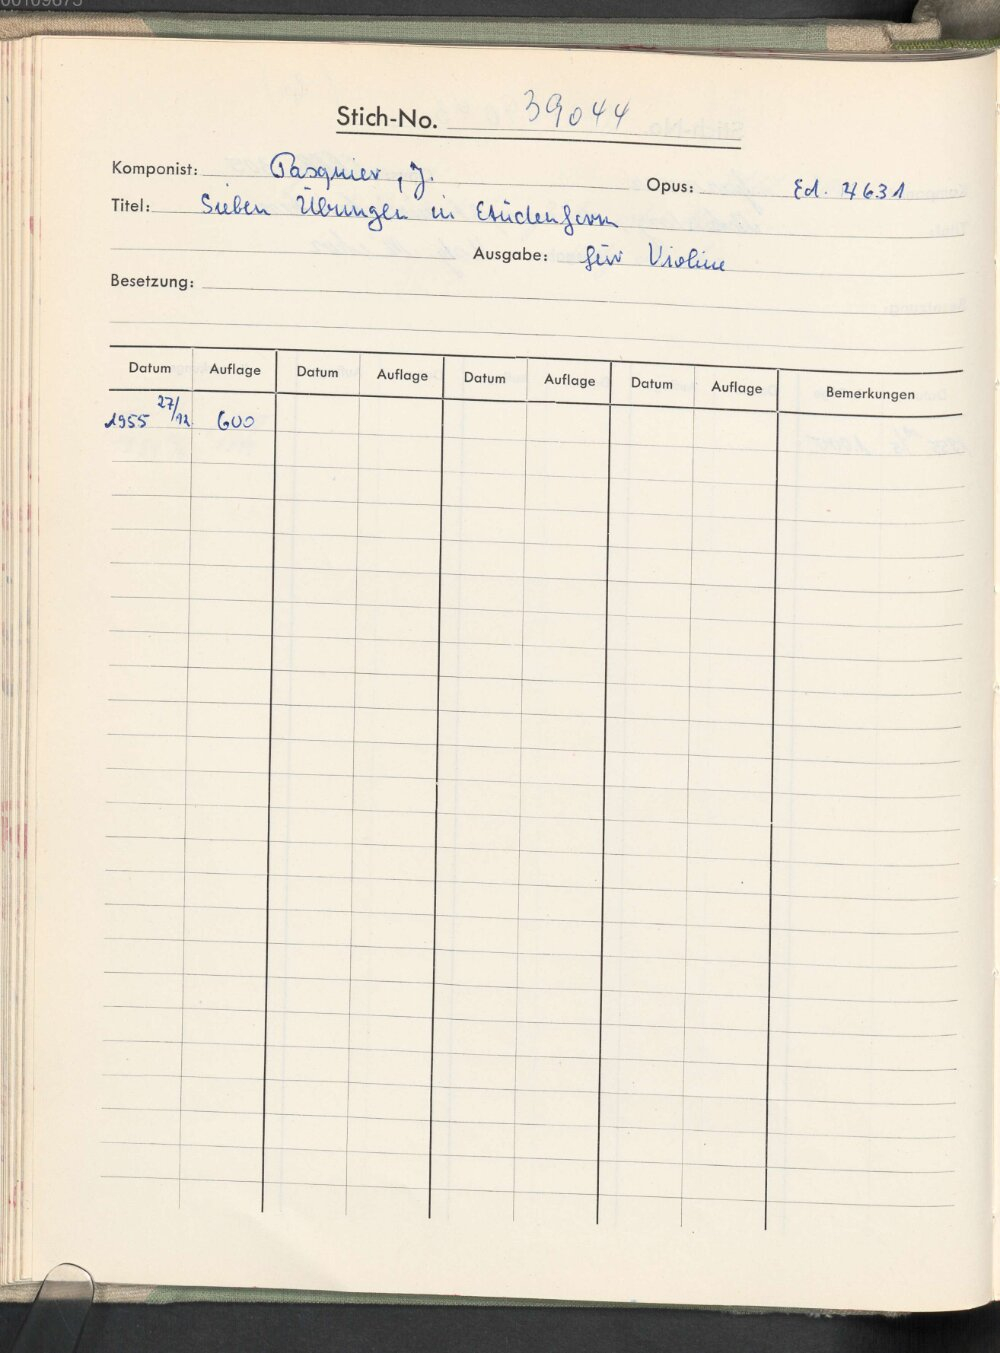 Stich-No. 39044
Komponist: Pasquier, J. Opus: Ed. 4631
Titel: Sieben Übungen in Etüdenform
Ausgabe: für Violine
Besetzung:
Datum Auflage Datum Auflage Datum Auflage Datum Auflage Bemerkungen
1955 27/12 600